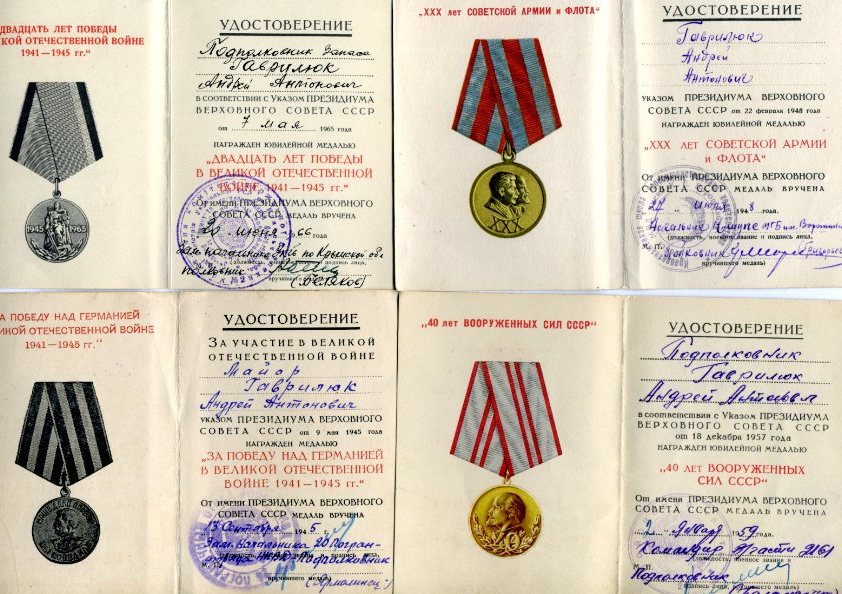 ДВАДЦАТЬ ЛЕТ ПОБЕДЫ
ЛИКОЙ ОТЕЧЕСТВЕННОЙ ВОЙНЕ
1941—1945 гг."
1945 1965
УДОСТОВЕРЕНИЕ
Подполковник запаса
Гаврилюк
Андрей Антонович
В СООТВЕТСТВИИ с Указом ПРЕЗИДИУМА
ВЕРХОВНОГО СОВЕТА СССР
от 7 мая 1965 года
НАГРАЖДЕН ЮБИЛЕЙНОЙ МЕДАЛЬЮ
„ДВАДЦАТЬ ЛЕТ ПОБЕДЫ
В ВЕЛИКОЙ ОТЕЧЕСТВЕННОЙ
ВОЙНЕ 1941—1945 гг."
От имени ПРЕЗИДИУМА ВЕРХОВНОГО
СОВЕТА СССР МЕДАЛЬ ВРУЧЕНА
20 июня 66 года
по Крымской обл
полковник
„XXX лет СОВЕТСКОЙ АРМИИ и ФЛОТА"
XXX
УДОСТОВЕРЕНИЕ
Гаврилюк
Андрей
Антонович
УКАЗОМ ПРЕЗИДИУМА ВЕРХОВНОГО
СОВЕТА СССР от 22 февраля 1948 года
НАГРАЖДЕН ЮБИЛЕЙНОЙ МЕДАЛЬЮ
„XXX ЛЕТ СОВЕТСКОЙ АРМИИ
и ФЛОТА"
От имени ПРЕЗИДИУМА ВЕРХОВНОГО
СОВЕТА СССР МЕДАЛЬ ВРУЧЕНА
27 1948 г.
Начальник
(должность, военное звание и подпись лица,
М. П. Полковник
вручившего медаль)
ЗА ПОБЕДУ НАД ГЕРМАНИЕЙ
ЛИКОЙ ОТЕЧЕСТВЕННОЙ ВОЙНЕ
1941—1945 гг."
УДОСТОВЕРЕНИЕ
ЗА УЧАСТИЕ В ВЕЛИКОЙ
ОТЕЧЕСТВЕННОЙ ВОЙНЕ
Майор
Гаврилюк
Андрей Антонович
УКАЗОМ ПРЕЗИДИУМА ВЕРХОВНОГО
СОВЕТА СССР от 9 мая 1945 года
НАГРАЖДЕН МЕДАЛЬЮ
"ЗА ПОБЕДУ НАД ГЕРМАНИЕЙ
В ВЕЛИКОЙ ОТЕЧЕСТВЕННОЙ
ВОЙНЕ 1941—1945 гг."
От имени ПРЕЗИДИУМА ВЕРХОВНОГО
СОВЕТА СССР МЕДАЛЬ ВРУЧЕНА
13 Сентября 1945 г.
Зам. Начальника 20 Погран-
Подполковник
вручившего медаль)
„40 лет ВООРУЖЕННЫХ СИЛ СССР"
40
УДОСТОВЕРЕНИЕ
Подполковник
Гаврилюк
Андрей
в соответствии с Указом ПРЕЗИДИУМА
ВЕРХОВНОГО СОВЕТА СССР
от 18 декабря 1957 года
НАГРАЖДЕН ЮБИЛЕЙНОЙ МЕДАЛЬЮ
„40 ЛЕТ ВООРУЖЕННЫХ
СИЛ СССР"
От имени ПРЕЗИДИУМА ВЕРХОВНОГО
СОВЕТА СССР МЕДАЛЬ ВРУЧЕНА
2 января 1959 года.
Командир части 2161
М. П.
Подполковник